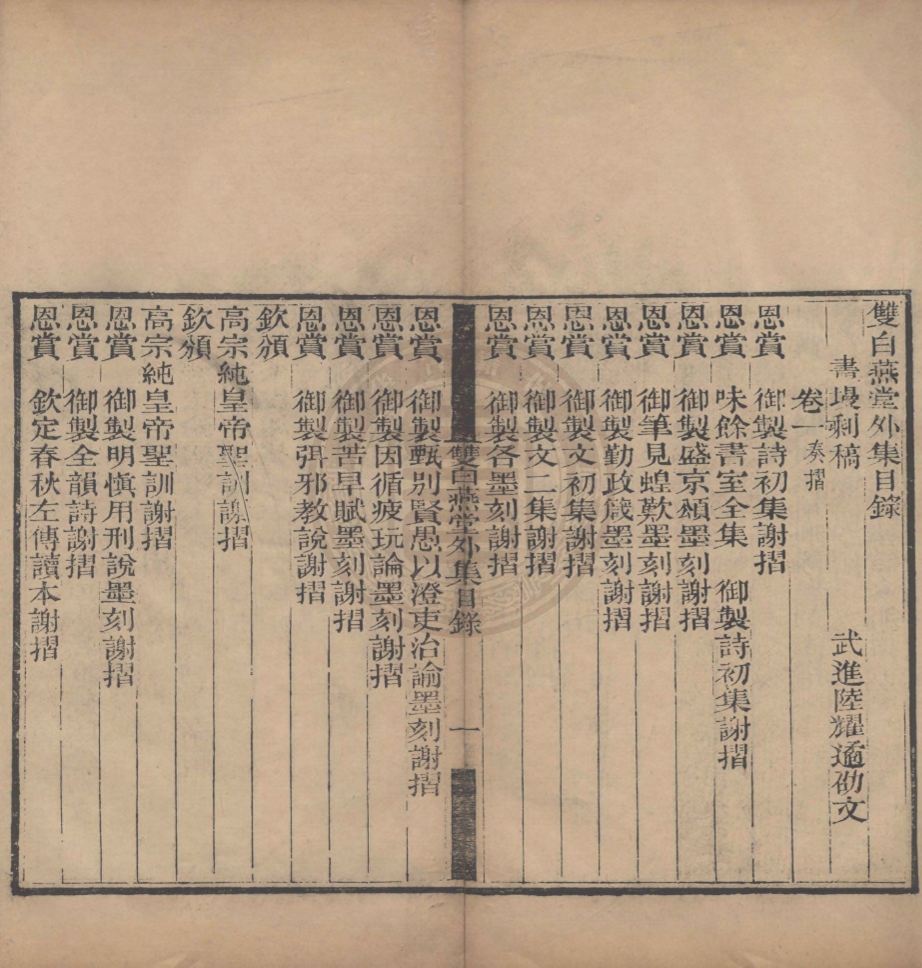 雙白燕堂外集目錄
書墁剩稿　武進陸耀遹劭文
卷一奏摺
恩賞　御製詩初集謝摺
恩賞　味餘書室全集　御製詩初集謝摺
恩賞　御製盛京頌墨刻謝摺
恩賞　御筆見蝗歎墨刻謝摺
恩賞　御製勤政箴墨刻謝摺
恩賞　御製文初集謝摺
恩賞　御製文二集謝摺
恩賞　御製各墨刻謝摺
雙白燕堂外集目錄　一
恩賞　御製甄別賢愚以澄吏治諭墨刻謝摺
恩賞　御製因循疲玩論墨刻謝摺
恩賞　御製苦旱賦墨刻謝摺
恩賞　御製弭邪教說謝摺
欽頒
高宗純皇帝聖訓謝摺
欽頒
高宗純皇帝聖訓謝摺
恩賞　御製明慎用刑說墨刻謝摺
恩賞　御製全韻詩謝摺
恩賞　欽定春秋左傳讀本謝摺